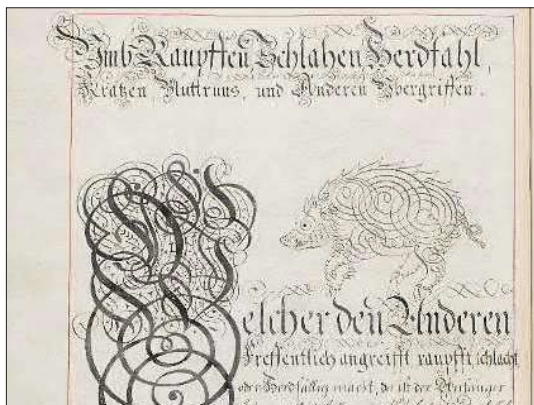 Umb Raupffen Schlahen Herdfahl,
Kratzen Bluttruns, und Anderen Ybergriffen.
Welcher den Anderen
Freffentlich angreifft raupfft schlacht
oder Herdfallig macht, da ist der Anfänger